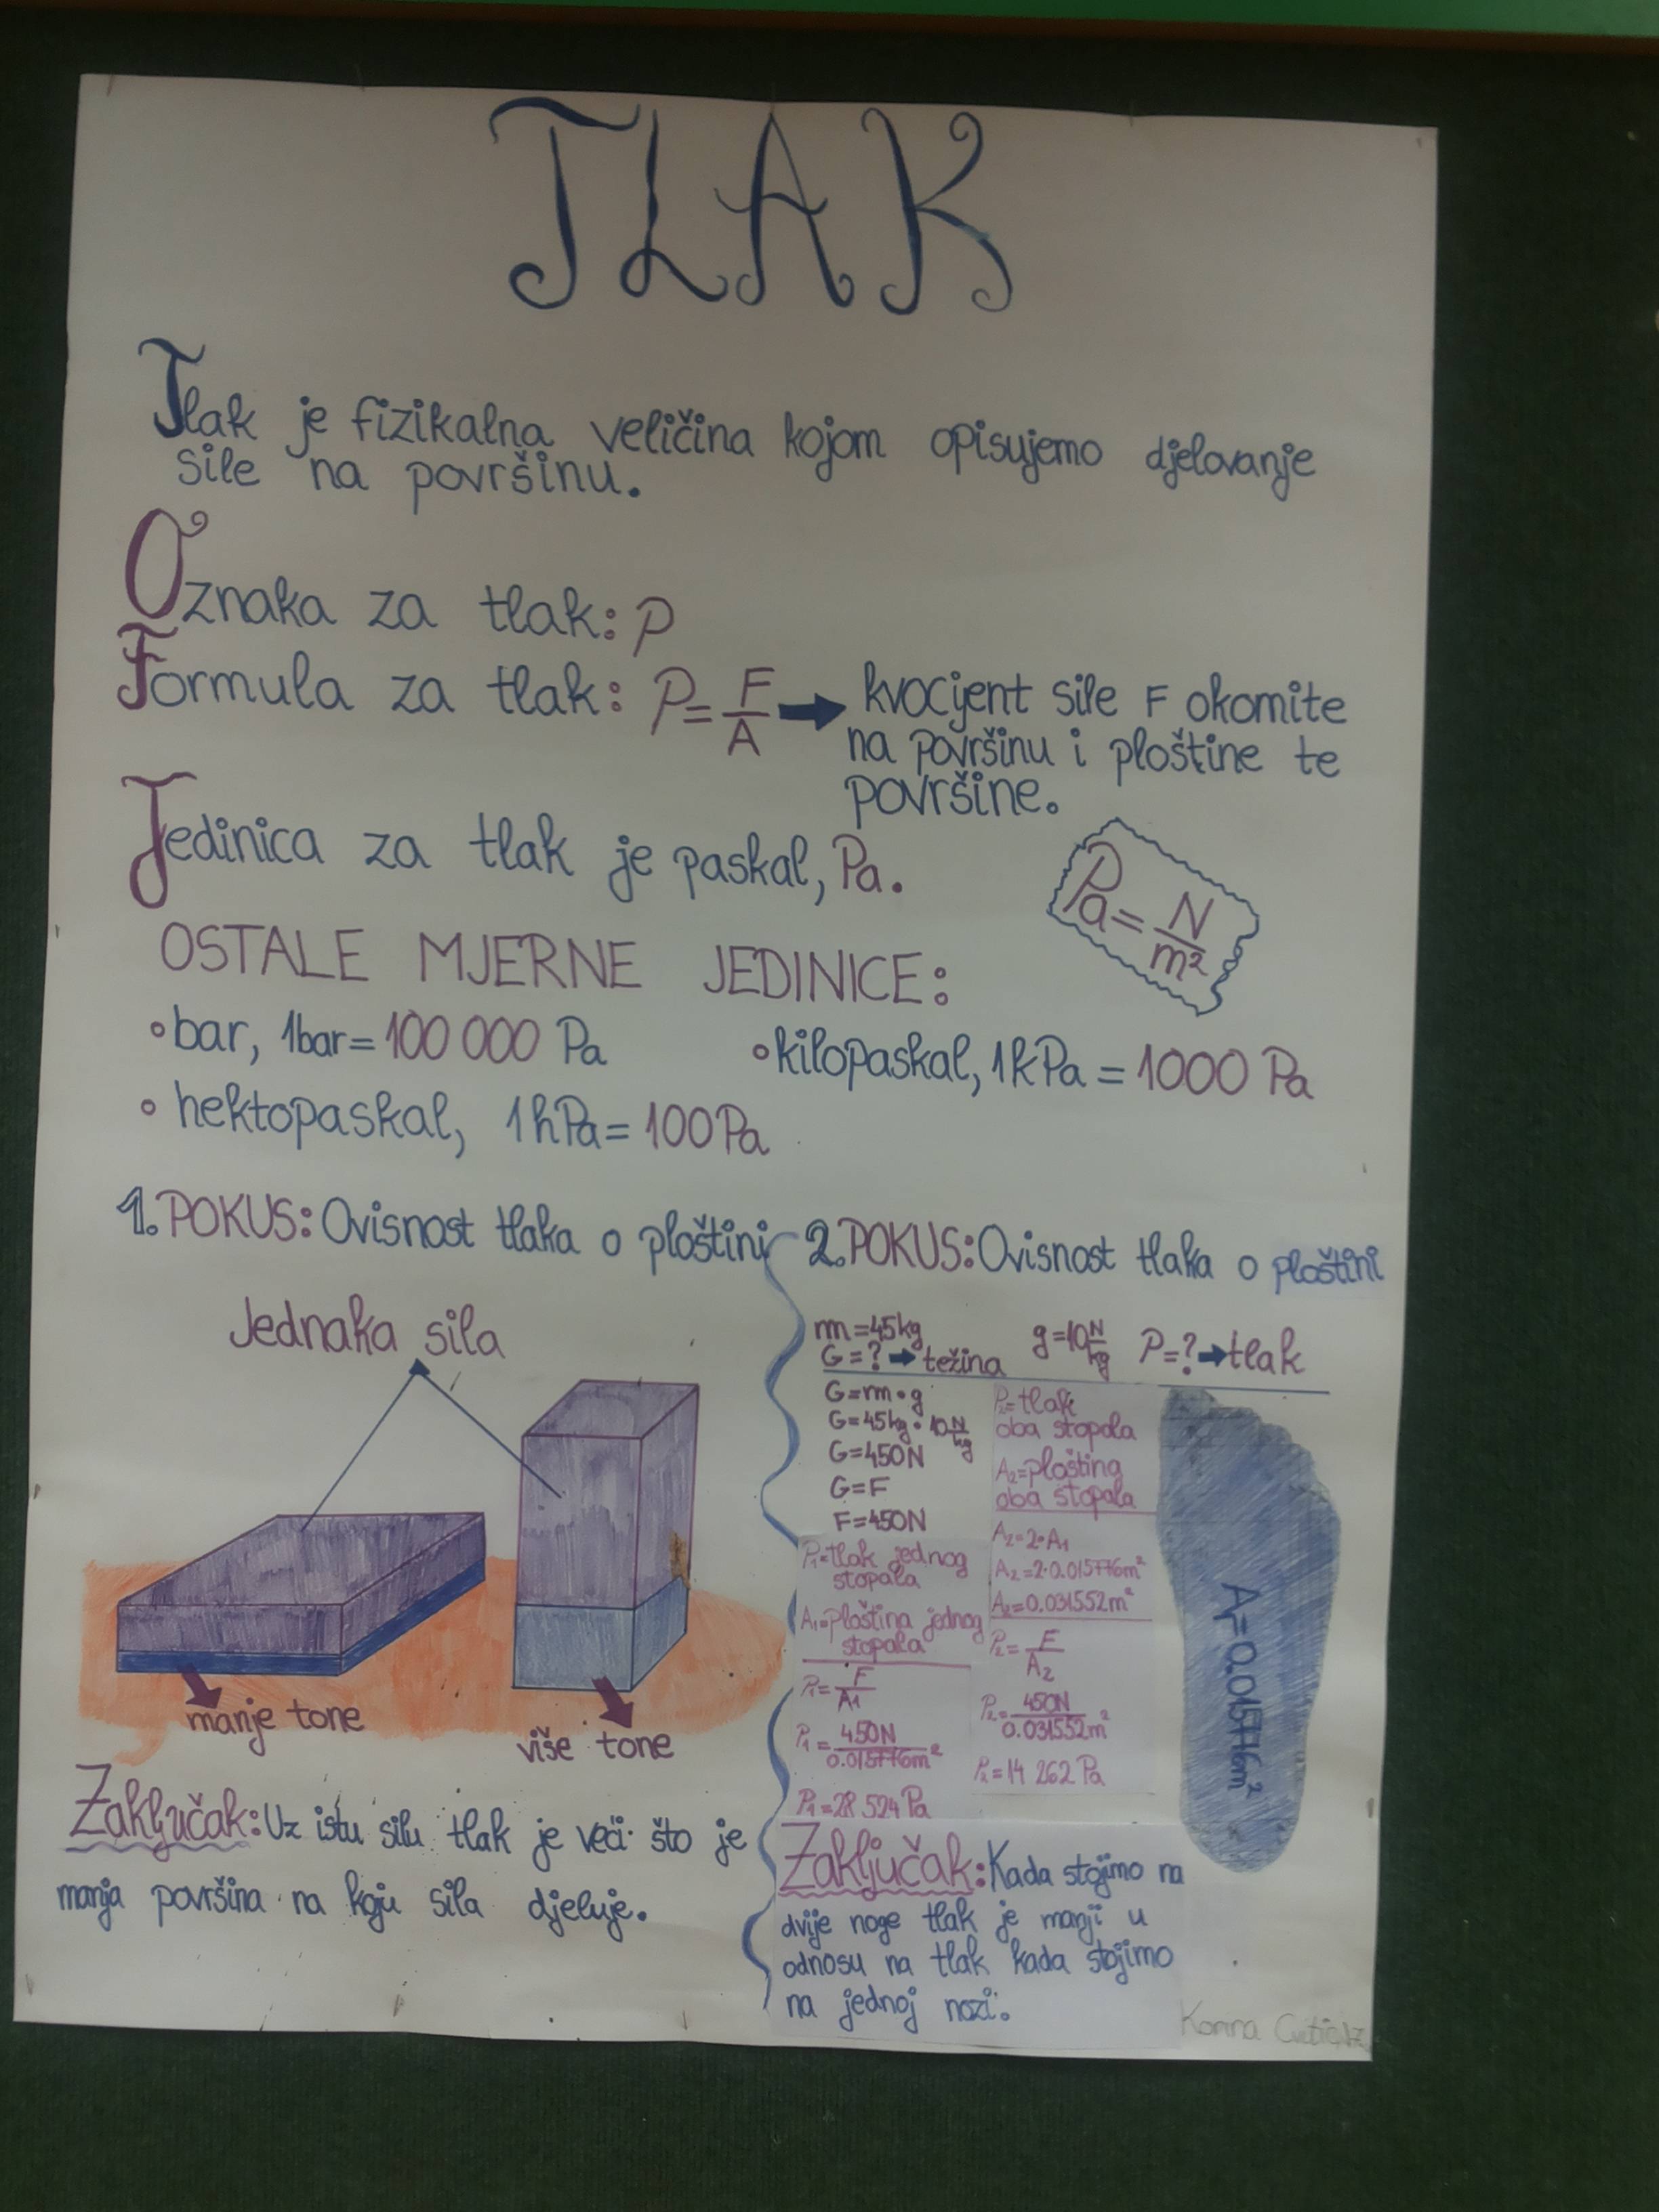 TLAK
Tlak je fizikalna veličina kojom opisujemo djelovanje
sile na površinu.
Oznaka za tlak: p
Formula za tlak: P=F/A → kvocijent sile F okomite
na površinu i ploštine te
površine.
Jedinica za tlak je paskal, Pa.
Pa=N/m²
OSTALE MJERNE JEDINICE:
•bar, 1bar=100 000 Pa
•kilopaskal, 1kPa=1000 Pa
•hektopaskal, 1hPa=100Pa
1.POKUS:Ovisnost tlaka o ploštini
Jednaka sila
manje tone
više tone
Zaključak:Uz istu silu tlak je veći što je
manja površina na koju sila djeluje.
2.POKUS:Ovisnost tlaka o ploštini
m=45kg g=10N/kg P=?→tlak
G=?→težina
G=m•g
G=45kg•10N/kg
G=450N
G=F
F=450N
P₁=tlak jednog
stopala
A₁=ploština jednog
stopala
P₁=F/A₁
P₁=450N/0.015776m²
P₁=28 524Pa
P₂=tlak
oba stopala
A₂=ploština
oba stopala
A₂=2•A₁
A₂=2•0.015776m²
A₂=0.031552m²
P₂=F/A₂
P₂=450N/0.031552m²
P₂=14 262Pa
A₁=0.015776m²
Zaključak:Kada stojimo na
dvije noge tlak je manji u
odnosu na tlak kada stojimo
na jednoj nozi.
Korina